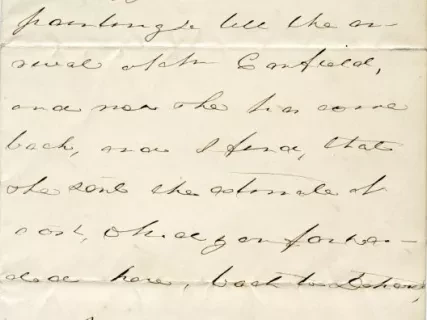 paintings till the ar-
rival of Mr Canfield,
and now she has come
back, now I find, that
she sent the estimate of
cost, which you forwar-
ded here, back to